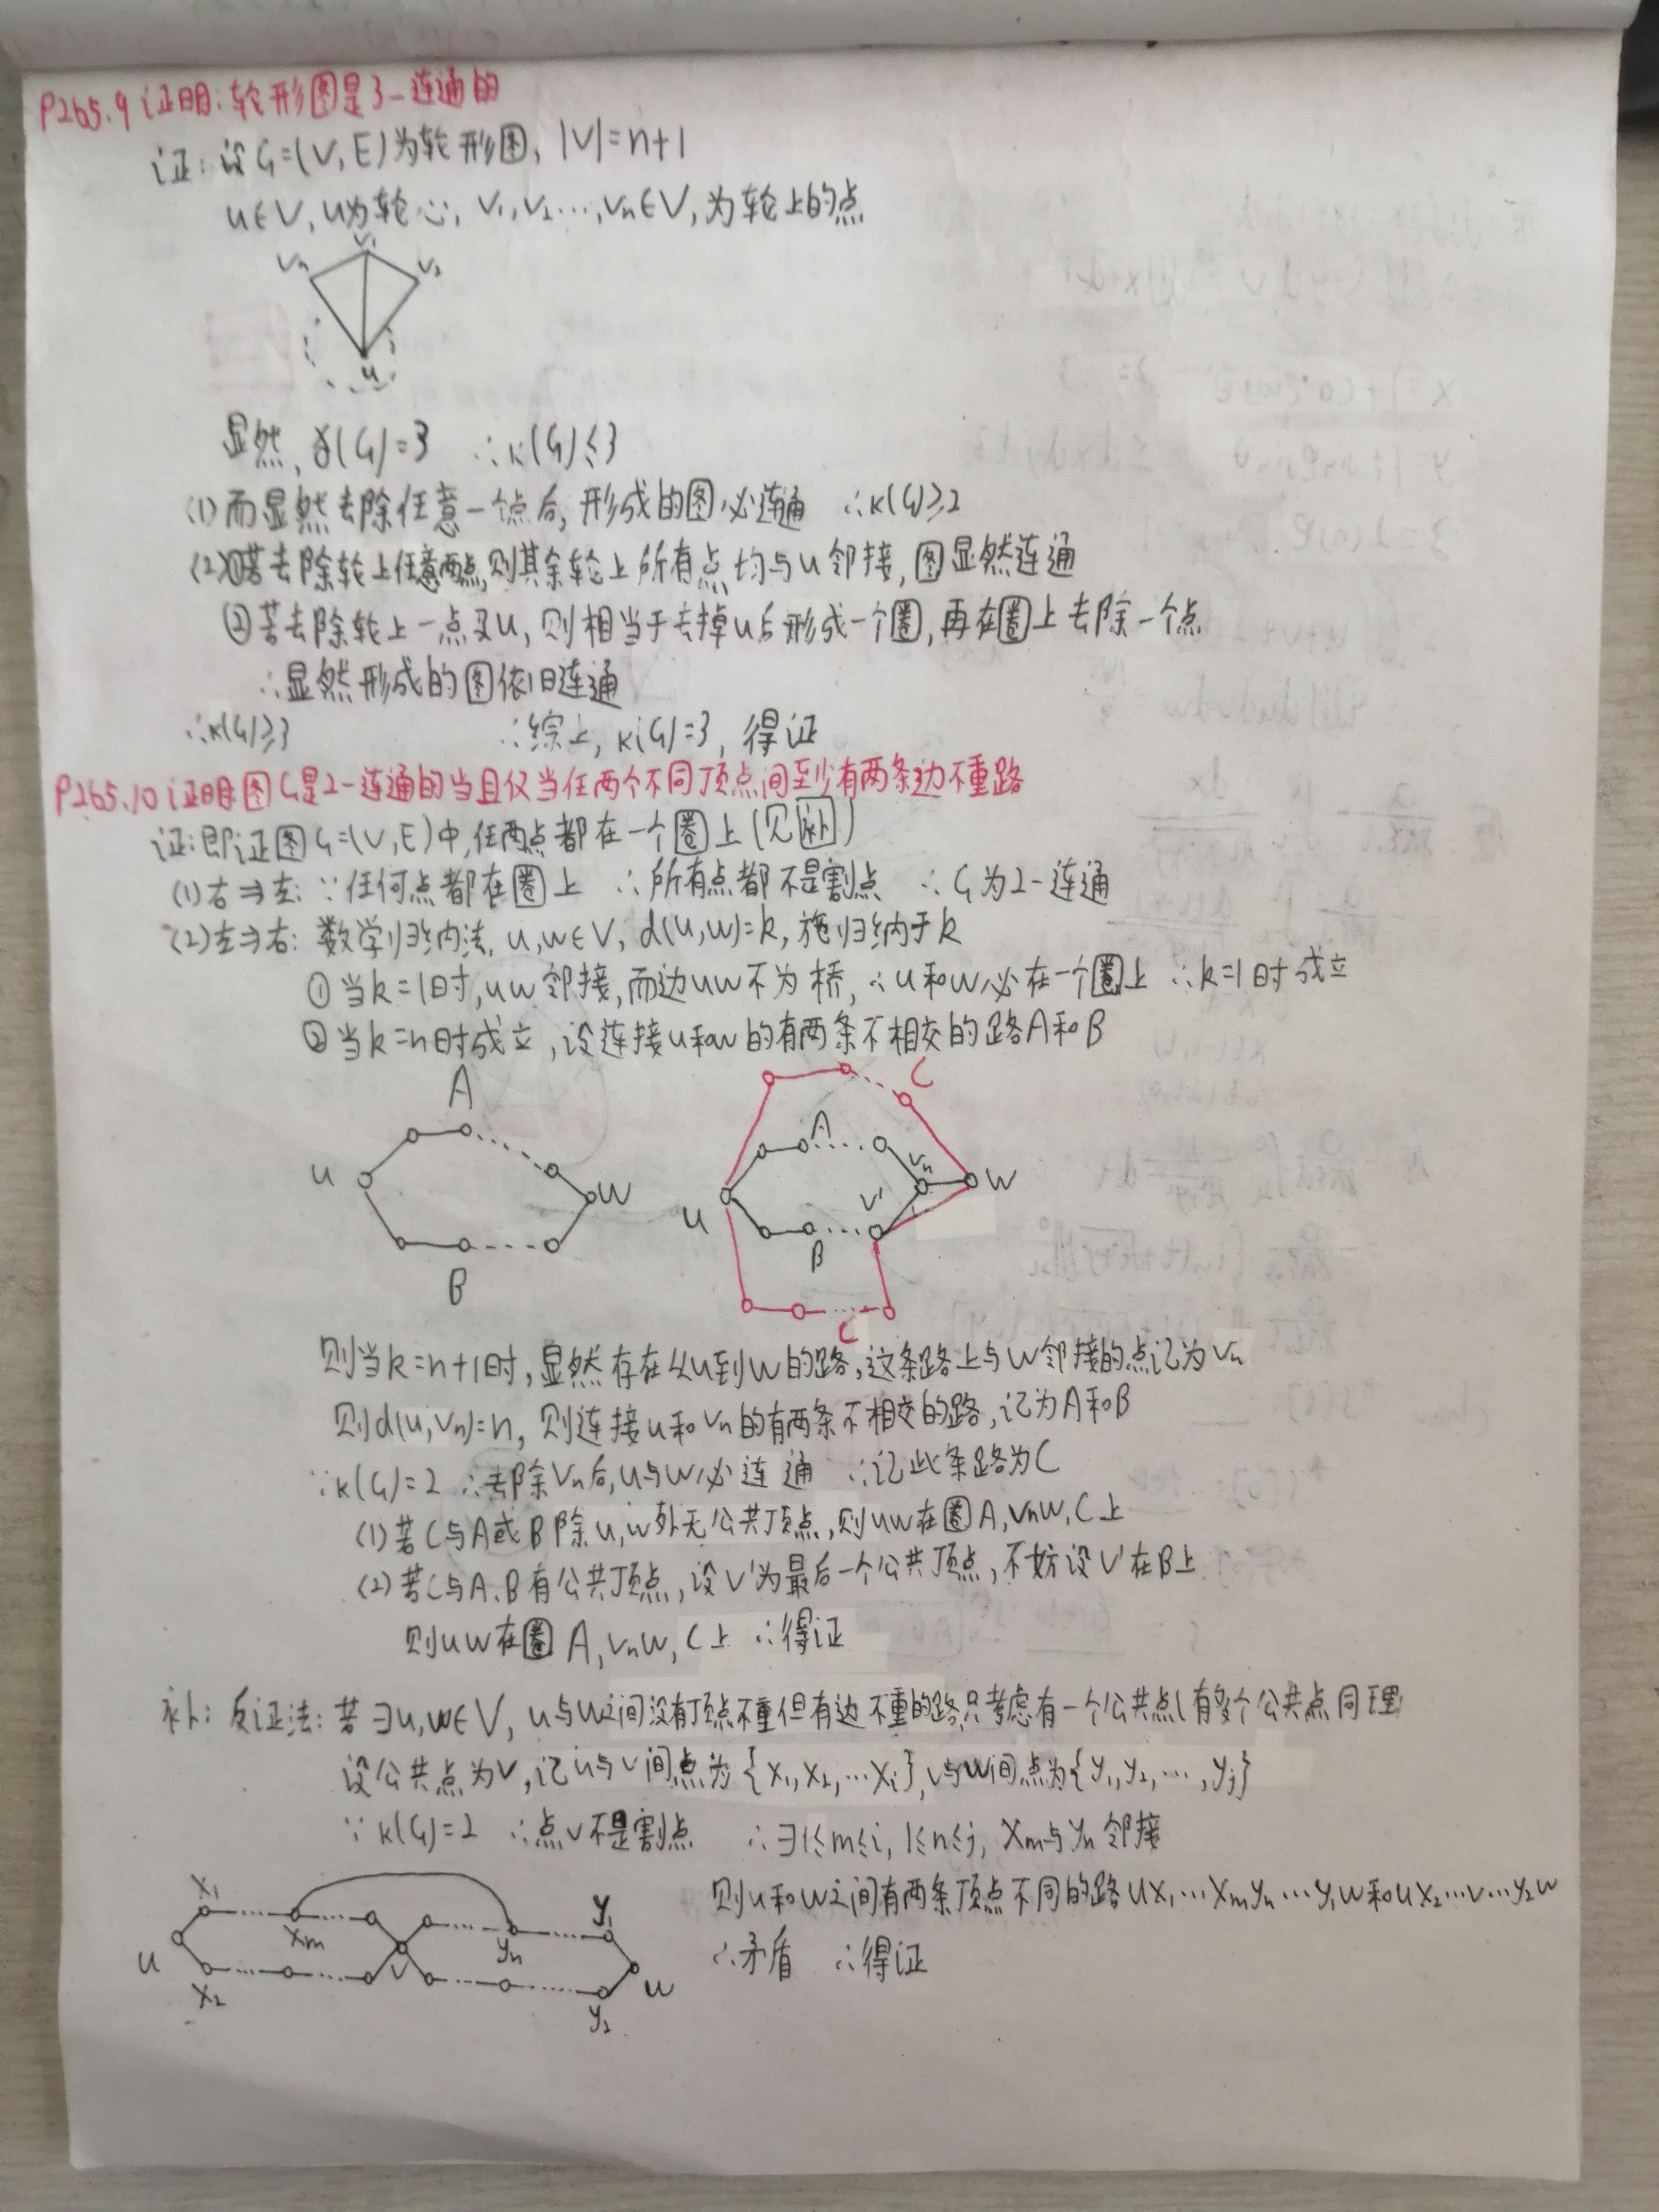 P265.9 证明:轮形图是3-连通的
证:设G=(V,E)为轮形图, |V|=n+1
u∈V, u为轮心, v₁,v₂…,vₙ∈V, 为轮上的点
v₁
vₙ v₂
u
显然, δ(G)=3 ∴κ(G)≤3
(1)而显然去除任意一个点后, 形成的图必连通 ∴κ(G)≥2
(2)①若去除轮上任意两点,则其余轮上所有点均与u邻接, 图显然连通
②若去除轮上一点及u, 则相当于去掉u后形成一个圈, 再在圈上去除一个点
∴显然形成的图依旧连通
∴κ(G)≥3 ∴综上, κ(G)=3, 得证
P265.10 证明:图G是2-连通的当且仅当任两个不同顶点间至少有两条边不重路
证:即证图G=(V,E)中,任两点都在一个圈上(见补)
(1)右⇒左: ∵任何点都在圈上 ∴所有点都不是割点 ∴G为2-连通
(2)左⇒右: 数学归纳法, u,w∈V, d(u,w)=k, 施归纳于k
①当k=1时,uw邻接,而边uw不为桥, ∴u和w必在一个圈上 ∴k=1时成立
②当k=n时成立, 设连接u和w的有两条不相交的路A和B
A C
A
u W u B v' vₙ W
B
C
则当k=n+1时, 显然存在从u到w的路,这条路上与w邻接的点记为vₙ
则d(u,vₙ)=n, 则连接u和vₙ的有两条不相交的路,记为A和B
∵κ(G)=2 ∴去除vₙ后,u与w必连通 ∴记此条路为C
(1)若C与A或B除u,w外无公共顶点,则uw在圈A,vₙw,C上
(2)若C与A.B有公共顶点, 设v'为最后一个公共顶点, 不妨设v'在B上
则uw在圈A,vₙw,C上 ∴得证
补: 反证法: 若∃u,w∈V, u与w之间没有顶点不重但有边不重的路,只考虑有一个公共点(有多个公共点同理
设公共点为v,记u与v间点为{x₁,x₂,…xᵢ},v与w间点为{y₁,y₂,…,yⱼ}
∵κ(G)=2 ∴点v不是割点 ∴∃1≤m≤i, 1≤n≤j, xₘ与yₙ邻接
则u和w之间有两条顶点不同的路ux₁…xₘyₙ…y₁w和ux₂…v…y₂w
∴矛盾 ∴得证
x₁ xₘ yₙ y₁
u v w
x₂ y₂